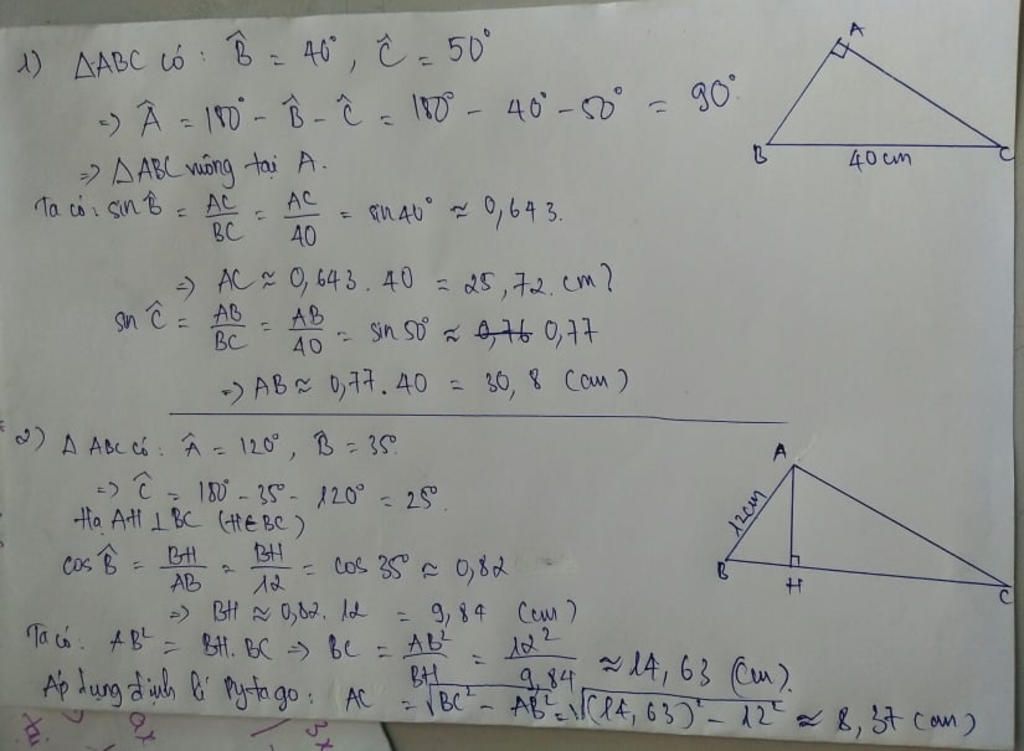 1) ΔABC có : B̂ = 40°, Ĉ = 50°
=> Â = 180° - B̂ - Ĉ = 180° - 40° - 50° = 90°
=> ΔABC vuông tại A.
Ta có: sin B̂ = AC/BC = AC/40 = sin 40° ≈ 0,643.
=> AC ≈ 0,643 . 40 = 25,72. cm)
sin Ĉ = AB/BC = AB/40 = sin 50° ≈ 0,76 0,77
=> AB ≈ 0,77 . 40 = 30,8 (cm)
A
B
C
40 cm
2) Δ ABC có: Â = 120°, B̂ = 35°.
=> Ĉ = 180° - 35° - 120° = 25°.
Hạ AH ⊥ BC (H ∈ BC)
cos B̂ = BH/AB = BH/12 = cos 35° ≈ 0,82
=> BH ≈ 0,82. 12 = 9,84 (cm)
Ta có: AB² = BH. BC => BC = AB²/BH = 12²/9,84 ≈ 14,63 (cm).
Áp dụng định lí Pytago: AC = √(BC² - AB²) = √((14,63)² - 12²) ≈ 8,37 (cm)
A
12cm
B
H
C